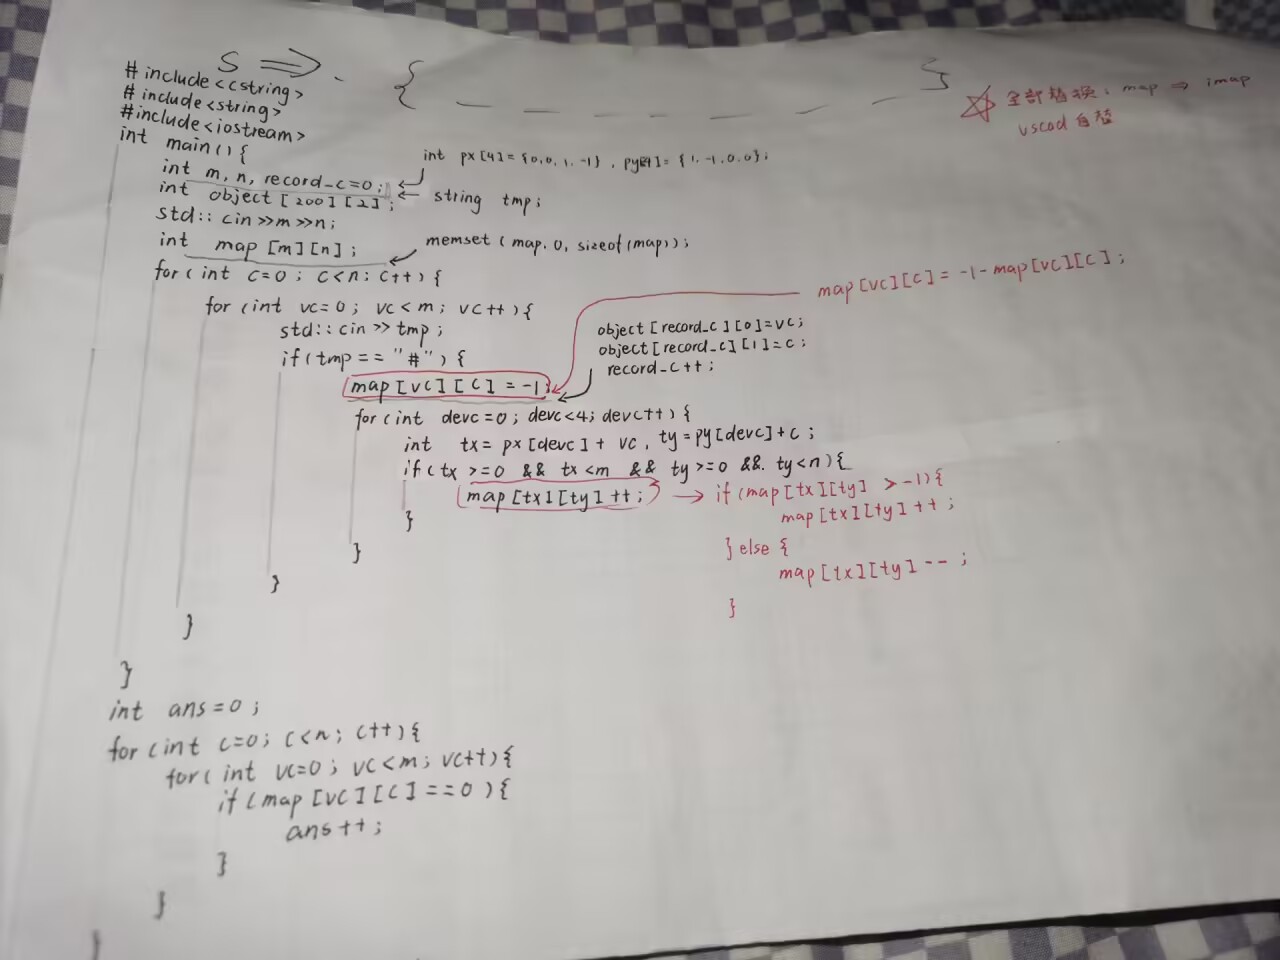 S ⇒. { _ _ _ _ _ _ _ }
☆ 全部替换: map ⇒ imap
vscod 自替
#include<cstring>
#include<string>
#include<iostream>
int main(){
int px[4]={0,0,1,-1}, py[4]={1,-1,0,0};
int m,n,record_c=0;
string tmp;
int object[200][2];
std::cin>>m>>n;
int map[m][n];
memset(map,0,sizeof(map));
for(int c=0; c<n; c++){
map[vc][c]=-1-map[vc][c];
for(int vc=0; vc<m; vc++){
std::cin>>tmp;
if(tmp=="#"){
object[record_c][0]=vc;
object[record_c][1]=c;
record_c++;
map[vc][c]=-1;
for(int devc=0; devc<4; devc++){
int tx=px[devc]+vc, ty=py[devc]+c;
if(tx>=0 && tx<m && ty>=0 && ty<n){
map[tx][ty]++; → if(map[tx][ty] >-1){
map[tx][ty]++;
}
}else {
map[tx][ty]--;
}
}
}
}
}
int ans=0;
for(int c=0; c<n; c++){
for(int vc=0; vc<m; vc++){
if(map[vc][c]==0){
ans++;
}
}
}